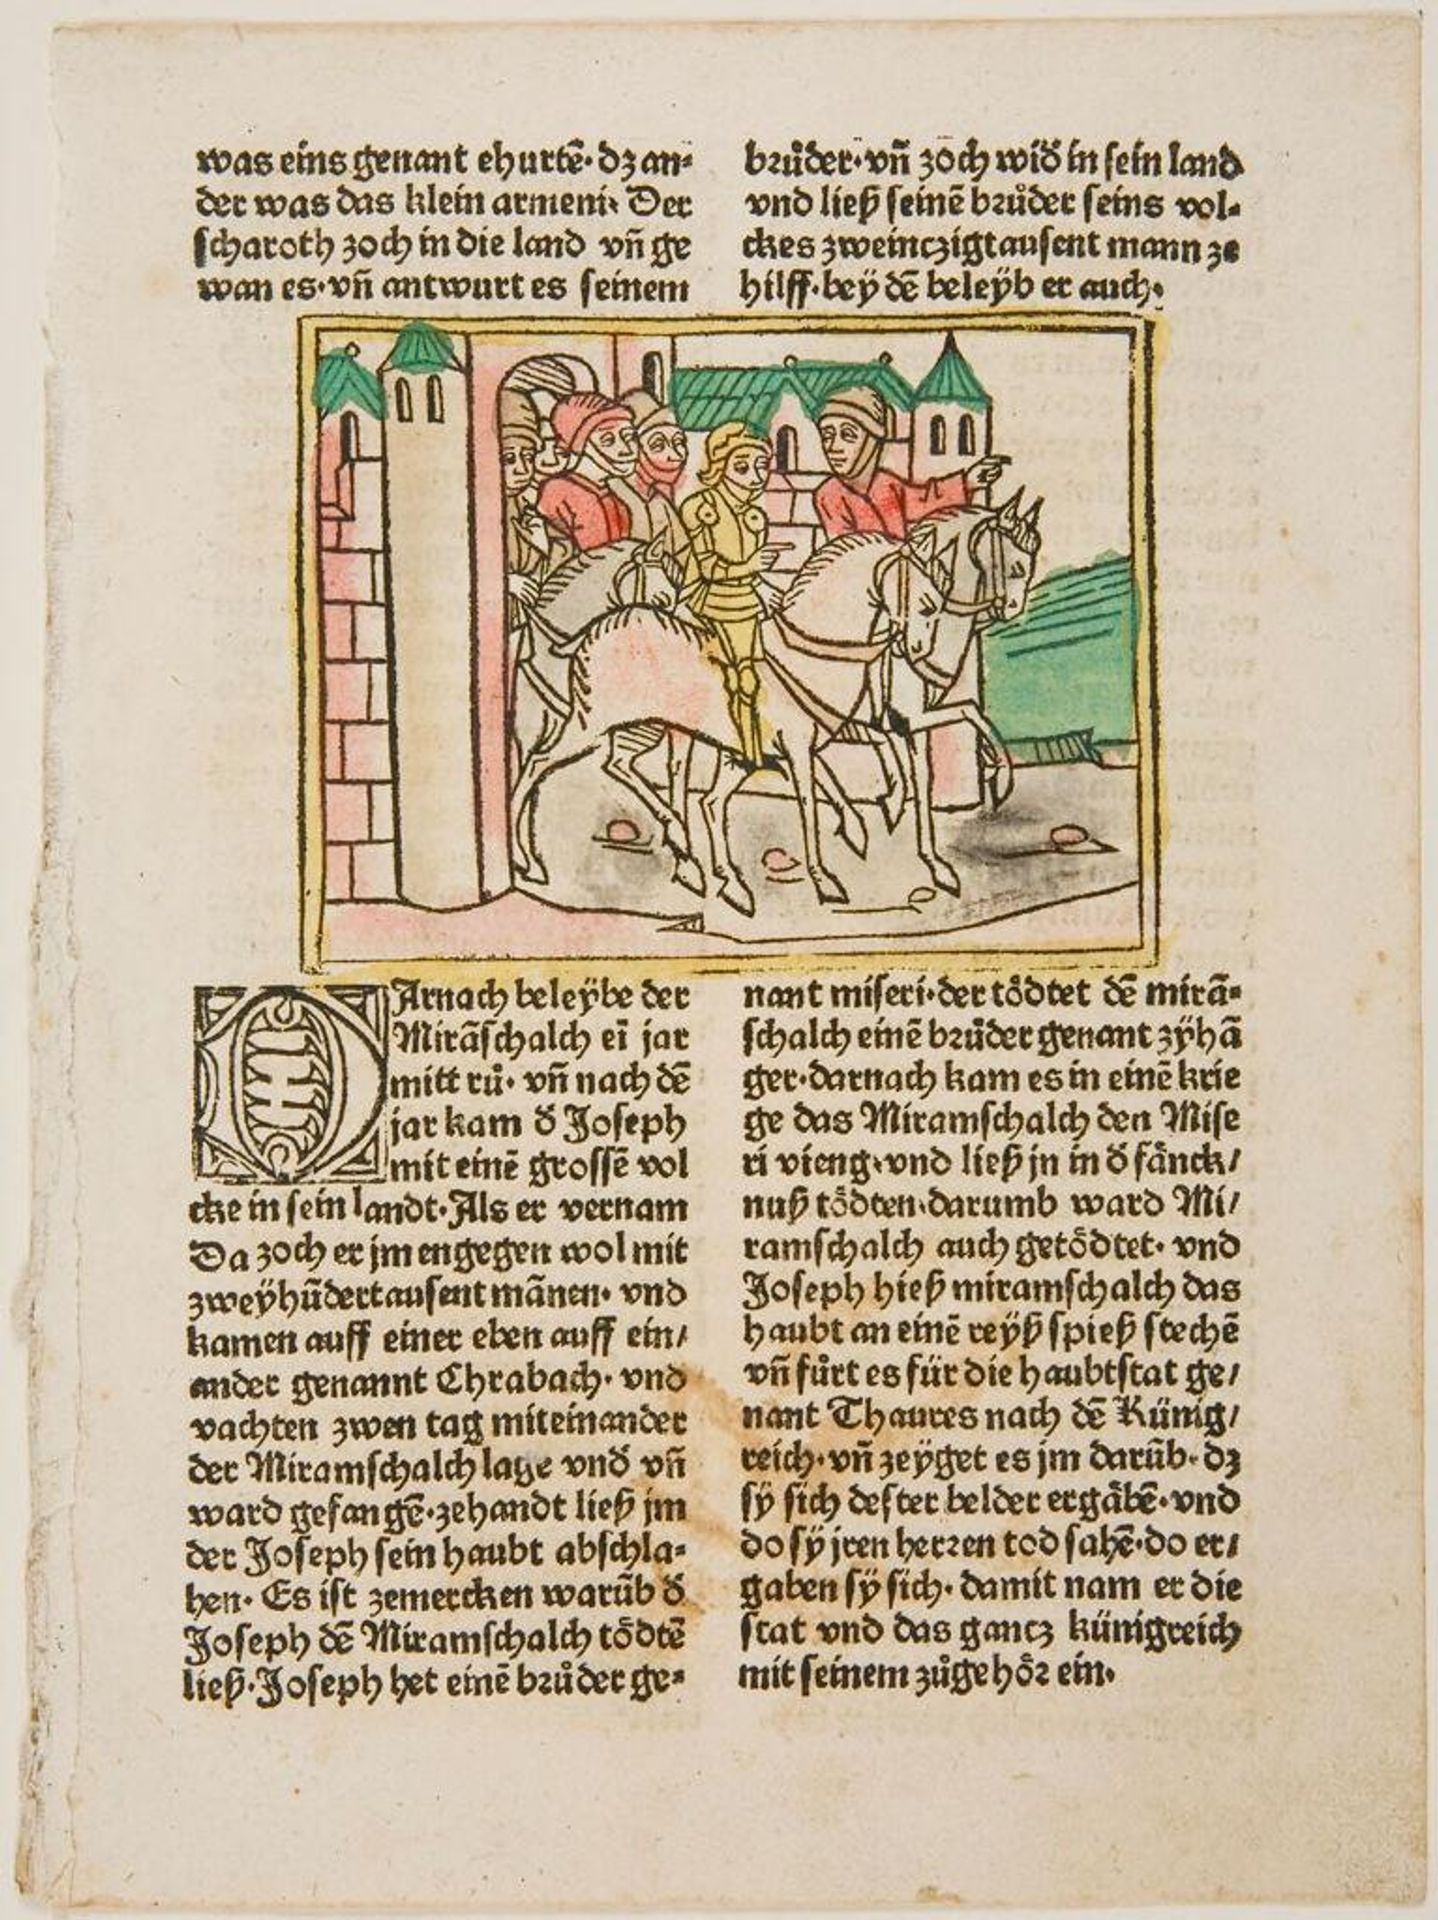 was eins genant ehurtē· dz an⸗
der was das klein armeni· Der
scharoth zoch in die land vn̄ ge
wan es· vn̄ antwurt es seinem
bꝛůder· vn̄ zoch wid̕ in sein land
vnd ließ seinē bꝛůder seins vol⸗
ckes zweinczigtausent mann ze
hilff· bey dē beleÿb er auch·
DArnach beleÿbe der
Mirāschalch ei jar
mitt rů· vn̄ nach dē
jar kam d̕ Joseph
mit einē grossē vol
cke in sein landt· Als er vernam
Da zoch er jm engegen wol mit
zweÿhūdert ausent mānen· vnd
kamen auff einer eben auff ein/
ander genannt Chrabach· vnd
vachten zwen tag miteinander
der Miramschalch lage vnd̕ vn̄
ward gefangē· zehandt ließ jm
der Joseph sein haubt abschla⸗
hen· Es ist zemercken warūb d̕
Joseph dē Miramschalch tödtē
ließ· Joseph het einē bꝛůder ge⸗
nant miseri· der tödtet dē mirā⸗
schalch einē bꝛůder genant zÿhā
ger· darnach kam es in einē krie
ge das Miramschalch den Mise
ri vieng· vnd ließ jn in d̕ fänck/
nuß tödten· darumb ward Mi/
ramschalch auch getödtet· vnd
Joseph hieß miramschalch das
haubt an einē reÿß spieß stechē
vn̄ fůrt es für die haubtstat ge/
nant Thaures nach dē Künig/
reich· vn̄ zeÿget es jm darūb· dz
sÿ sich dester belder ergäbē· vnd
do sÿ jren herꝛen tod sahē· do er/
gaben sÿ sich· damit nam er die
stat vnd das gancz künigreich
mit seinem zůgehöꝛ ein·